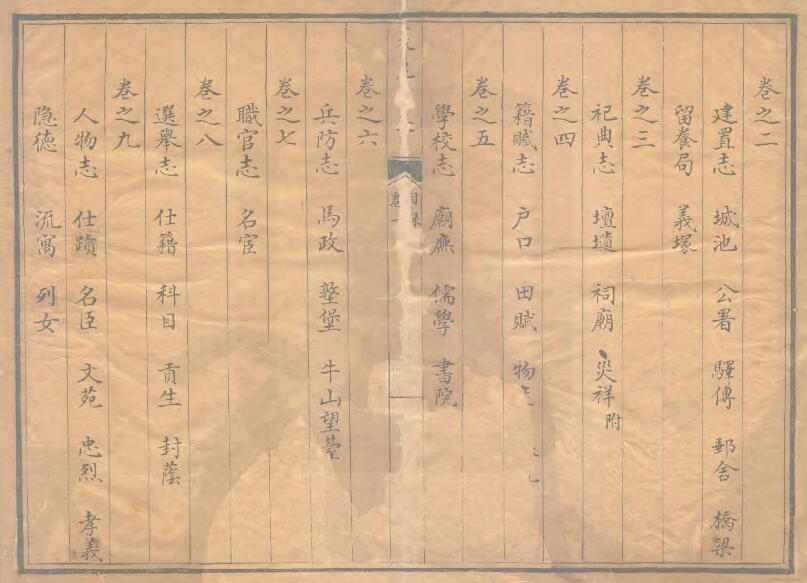 卷之二
建置志 城池 公署 驛傳 郵舍 橋梁
留養局 義塚
卷之三
祀典志 壇壝 祠廟 災祥附
卷之四
籍賦志 户口 田賦 物
卷之五
學校志 廟廡 儒學 書院
目録
卷一
卷之六
兵防志 馬政 墪堡 牛山望臺
卷之七
職官志 名宦
卷之八
選舉志 仕籍 科目 貢生 封蔭
卷之九
人物志 仕蹟 名臣 文苑 忠烈 孝義
隐德 流寓 列女